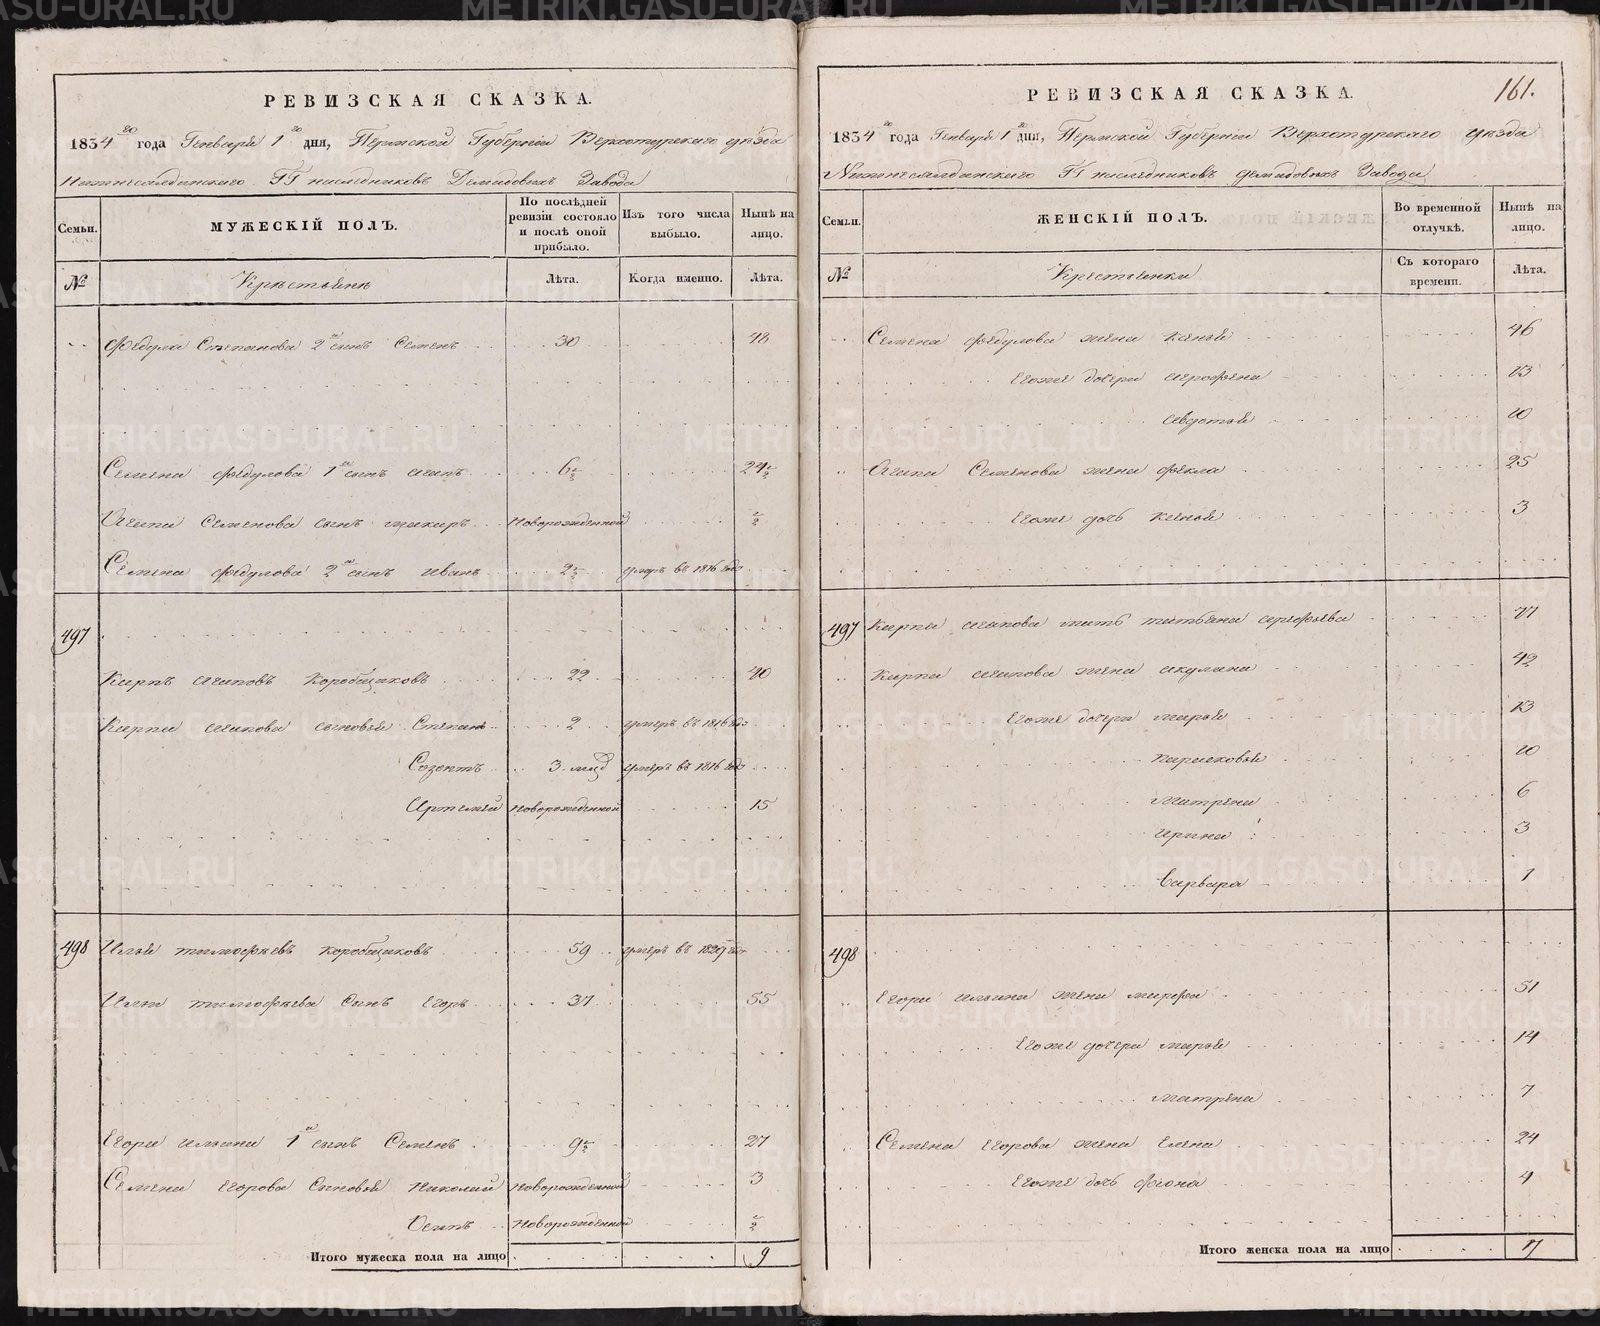 РЕВИЗСКАЯ СКАЗКА.
1834 го года Генваря 1 го дня, Пермской Губерніи Верхотурскаго уезда
Нижнесалдинскаго ГГ наследниковъ Демидовыхъ Завода
Семьи.
МУЖЕСКІЙ ПОЛЪ.
По послѣдней ревизіи состояло и послѣ оной прибыло.
Изъ того числа выбыло.
Нынѣ на лицо.
№
Крестьяне
Лѣта.
Когда именно.
Лѣта.
Федула Степанова 2й сынъ Семенъ 30 48
Семена Федулова 1й сынъ Агапъ 6½ 24½
Агапа Семенова сынъ Новорожденной ½
Семена Федулова 2й сынъ Иванъ 2½ умеръ въ 1816 годе
497
Карпъ Агаповъ Коробщиковъ 22 40
Карпа Агапова сыновья Степанъ 2 умеръ въ 1816 годе
Созонтъ 3. мцд умеръ въ 1816 годе
Артемей Новорожденной 15
498 Илья Тимофеевъ Коробщиковъ 59 умеръ въ 1829 годе
Ильи Тимофеева Сынъ Егоръ 37 55
Егора Ильина 1й сынъ Семенъ 9½ 27
Семена Егорова Сыновья Николай Новорожденной 3
Осипъ Новорожденной ½
Итого мужеска пола на лицо 9
161.
РЕВИЗСКАЯ СКАЗКА.
1834 го года Генваря 1 го дня, Пермской Губерніи Верхотурскаго уезда
Нижнесалдинскаго ГГ наследниковъ Демидовыхъ Завода
Семьи.
ЖЕНСКІЙ ПОЛЪ.
Во временной отлучкѣ.
Нынѣ на лицо.
№
Крестьянки
Съ котораго времени.
Лѣта.
Семена Федулова жена Ксенья 46
Егоже дочери Агрофена 13
Авдотья 10
Агапа Семенова жена Фекла 25
Егоже дочь Ксенья 3
497 Карпа Агапова мать Татьяна 77
Карпа Агапова жена Акулина 42
Егоже дочери Марья 13
Парасковья 10
Матрена 6
Ирина 3
Варвара 1
498
Егора Ильина жена Марфа 51
Егоже дочери Марья 14
Матрена 7
Семена Егорова жена Елена 24
Егоже дочь Фіона 4
Итого женска пола на лицо 17
METRIKI.GASO-URAL.RU